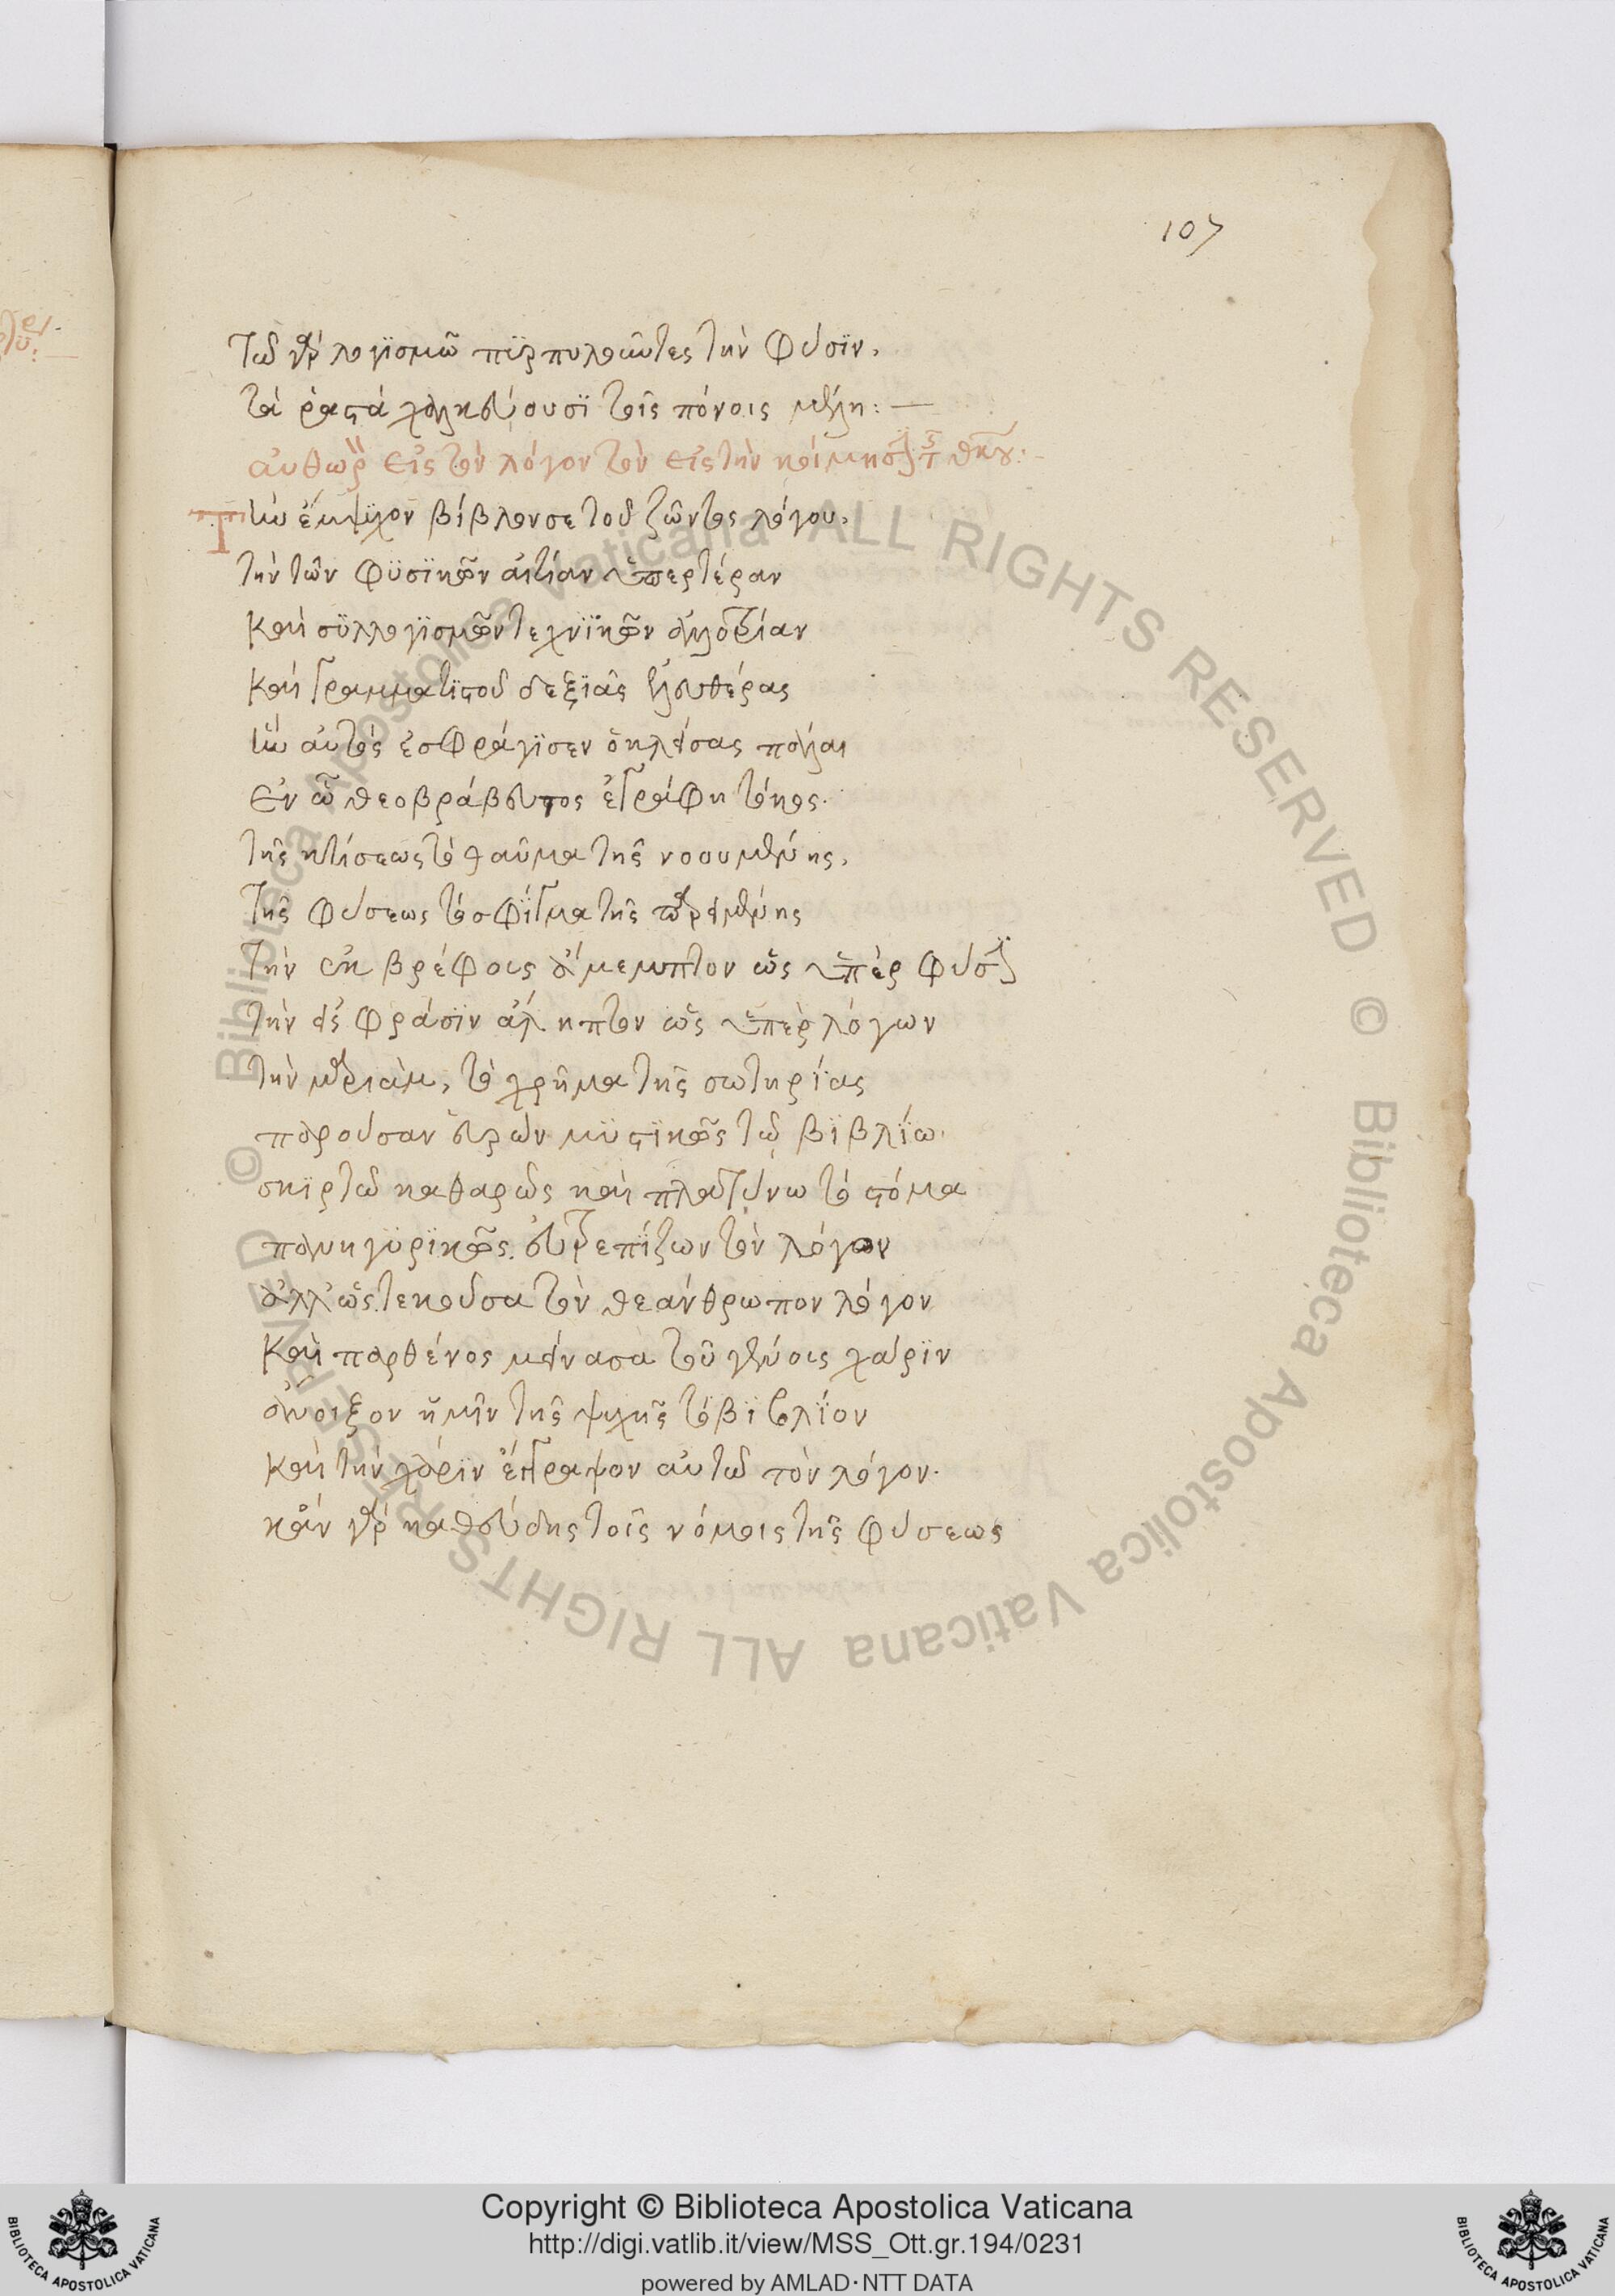 107
τῶ γὰρ λογϊσμῶ πϋρπολοῦντες τὴν φύσϊν,
τὰ ῥᾶστα χαλκεύουσϊ τοῖς πόνοις μέλη:—
αὐθωρ εἰς τὸν λόγον τὸν εἰς τὴν κοίμησιν τῆς θκου:
Τὴν ἔμψϋχον βίβλον σε τοῦ ζῶντος λόγου,
τὴν τῶν φϋσϊκῶν αἰτίαν ὑπερτέραν
καὶ σϋλλογϊσμῶν τεχνϊκῶν ἀλλοτρίαν
καὶ γραμματϊστοῦ δεξϊᾶς ἐλευθέρας
ἣν αὐτὸς ἐσφράγϊσεν ὁ κλείσας πάλαι
ἐν ᾧ θεοβράβευτος ἐγράφη τόκος.
τῆς κτίσεως τὸ θαῦμα τῆς νοουμένης,
τῆς φύσεως τὸ σφίγμα τῆς ὁρωμένης
τὴν ἐκ βρέφους ἄμεμπτον ὡς ὑπὲρ φύσιν
τὴν εἰς φράσϊν ἄληπτον ὡς ὑπὲρ λόγων
τὴν μαριὰμ, τὸ χρῆμα τῆς σωτηρίας
παροῦσαν εὑρὼν μϋστϊκῶς τῶ βϊβλϊω.
σκϊρτῶ καθαρῶς καὶ πλατύνω τὸ στόμα
πανηγϋρϊκῶς εὐτρεπίζων τὸν λόγον
ἀλλ' ὡς τεκοῦσα τὸν θεάνθρωπον λόγον
καὶ παρθένος μείνασα τοῦ γένους χάρϊν
ἄνοιξον ἡμῖν τῆς ψυχῆς τὸ βϊβλϊον
καὶ τὴν χάρϊν ἔγγραψον αὐτῶ τὸν λόγον.
κἂν γὰρ καθεύδης τοῖς νόμοις τῆς φύσεως
Copyright © Biblioteca Apostolica Vaticana
http://digi.vatlib.it/view/MSS_Ott.gr.194/0231
powered by AMLAD·NTT DATA
© Biblioteca Apostolica Vaticana ALL RIGHTS RESERVED
© Biblioteca Apostolica Vaticana ALL RIGHTS RESERVED
BIBLIOTECA APOSTOLICA VATICANA
BIBLIOTECA APOSTOLICA VATICANA